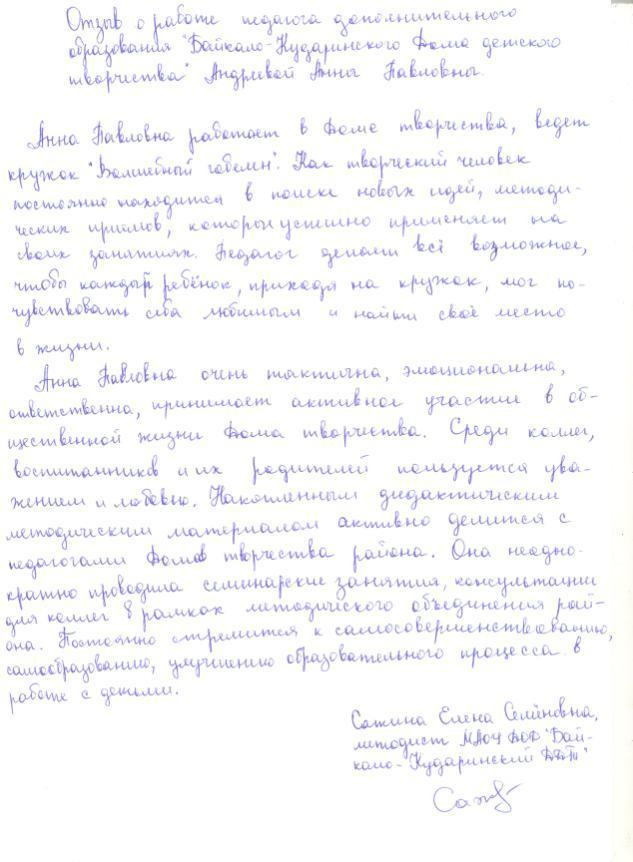 Отзыв о работе педагога дополнительного
образования "Байкало-Кударинского Дома детского
творчества" Андреевой Анны Павловны.
Анна Павловна работает в Доме творчества, ведет
кружок "Волшебный гобелен". Как творческий человек
постоянно находится в поиске новых идей, методи-
ческих приёмов, которые успешно применяет на
своих занятиях. Педагог делает всё возможное,
чтобы каждый ребёнок, приходя на кружок, мог по-
чувствовать себя любимым и найти своё место
в жизни.
Анна Павловна очень тактична, эмоциональна,
ответственна, принимает активное участие в об-
щественной жизни Дома творчества. Среди коллег,
воспитанников и их родителей пользуется ува-
жением и любовью. Накопленным дидактическим
методическим материалом активно делится с
педагогами Домов творчества района. Она неодно-
кратно проводила семинарские занятия, консультации
для коллег в рамках методического объединения рай-
она. Постоянно стремится к самосовершенствованию,
самообразованию, улучшению образовательного процесса в
работе с детьми.
Сажина Елена Семёновна,
методист МАОУ ДОД "Бай-
кало-Кударинский ДДТ"
Саж